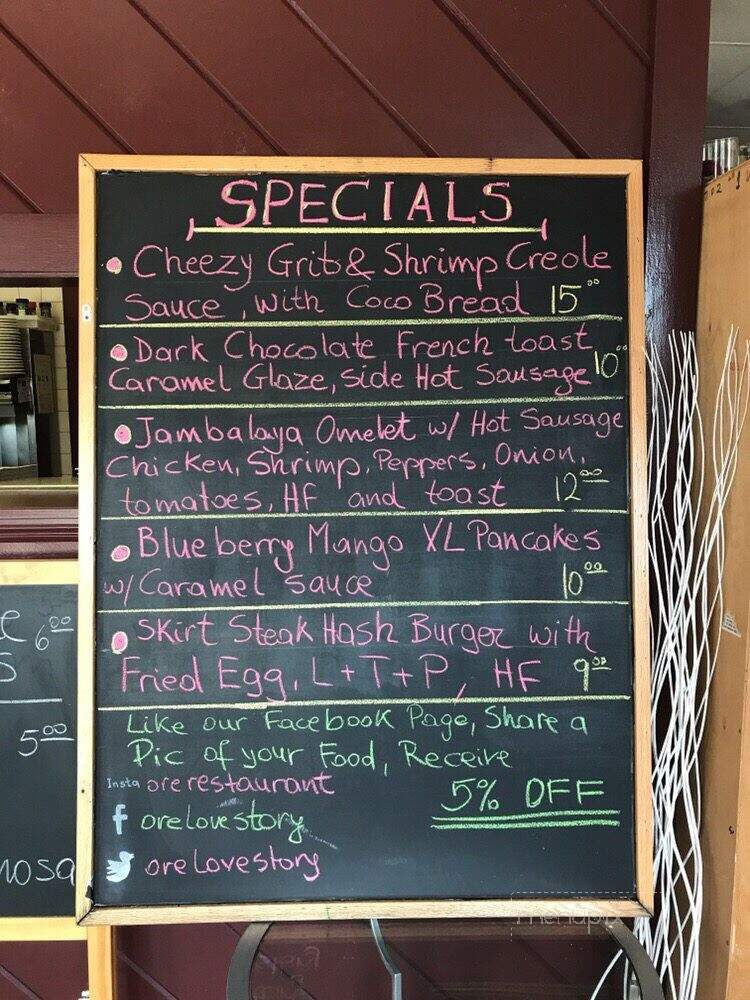 SPECIALS
Cheezy Grits & Shrimp Creole
Sauce, with Coco Bread 15⁰⁰
Dark Chocolate French toast
Caramel Glaze, side Hot Sausage 10⁰⁰
Jambalaya Omelet w/ Hot Sausage
Chicken, Shrimp, Peppers, Onion,
tomatoes, HF and toast 12⁰⁰
Blueberry Mango XL Pancakes
w/ Caramel sauce 10⁰⁰
Skirt Steak Hash Burger with
Fried Egg, L+T+P, HF 9⁰⁰
Like our Facebook Page, Share a
Pic of your Food, Receive
5% OFF
Insta orerestaurant
f orelovestory
orelovestory
6⁰⁰
5⁰⁰
mosa
menupix